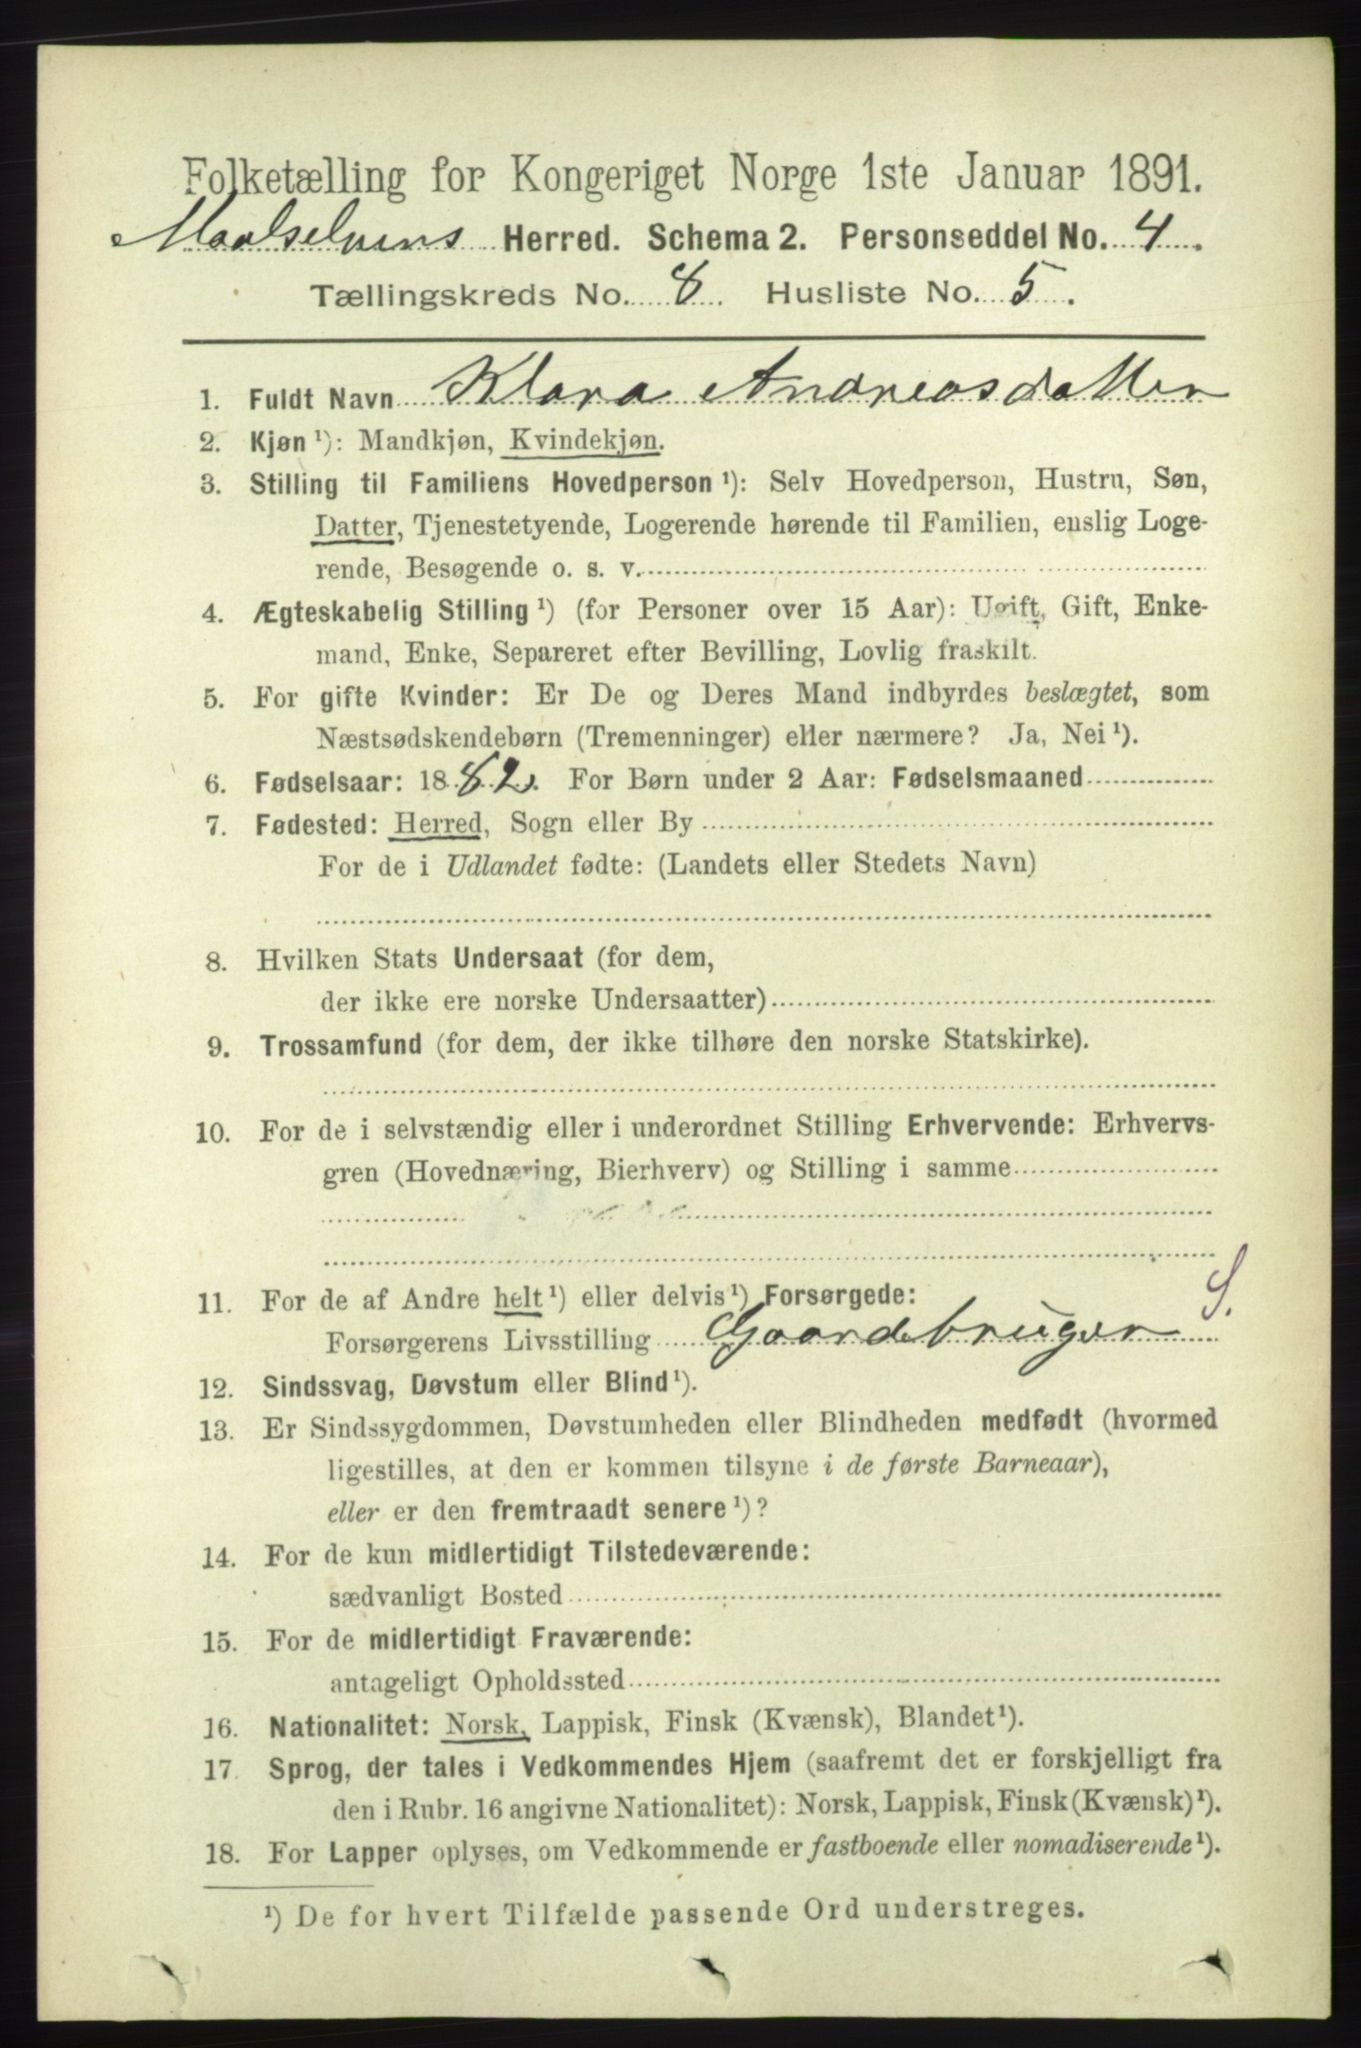 Folketælling for Kongeriget Norge 1ste Januar 1891.
Maalselvens Herred. Schema 2. Personseddel No. 4.
Tællingskreds No. 8. Husliste No. 5.
1. Fuldt Navn Klara Andreasdatter
2. Kjøn ¹): Mandkjøn, Kvindekjøn.
3. Stilling til Familiens Hovedperson ¹): Selv Hovedperson, Hustru, Søn,
Datter, Tjenestetyende, Logerende hørende til Familien, enslig Loge-
rende, Besøgende o. s. v.
4. Ægteskabelig Stilling ¹) (for Personer over 15 Aar): Ugift, Gift, Enke-
mand, Enke, Separeret efter Bevilling, Lovlig fraskilt.
5. For gifte Kvinder: Er De og Deres Mand indbyrdes beslægtet, som
Næstsødskendebørn (Tremenninger) eller nærmere? Ja, Nei ¹).
6. Fødselsaar: 1882. For Børn under 2 Aar: Fødselsmaaned
7. Fødested: Herred, Sogn eller By
For de i Udlandet fødte: (Landets eller Stedets Navn)
8. Hvilken Stats Undersaat (for dem,
der ikke ere norske Undersaatter)
9. Trossamfund (for dem, der ikke tilhøre den norske Statskirke).
10. For de i selvstændig eller i underordnet Stilling Erhvervende: Erhvervs-
gren (Hovednæring, Bierhverv) og Stilling i samme
11. For de af Andre helt ¹) eller delvis ¹) Forsørgede: S.
Forsørgerens Livsstilling Gaardebruger
12. Sindssvag, Døvstum eller Blind ¹).
13. Er Sindssygdommen, Døvstumheden eller Blindheden medfødt (hvormed
ligestilles, at den er kommen tilsyne i de første Barneaar),
eller er den fremtraadt senere ¹)?
14. For de kun midlertidigt Tilstedeværende:
sædvanligt Bosted
15. For de midlertidigt Fraværende:
antageligt Opholdssted
16. Nationalitet: Norsk, Lappisk, Finsk (Kvænsk), Blandet ¹).
17 Sprog, der tales i Vedkommendes Hjem (saafremt det er forskjelligt fra
den i Rubr. 16 angivne Nationalitet): Norsk, Lappisk, Finsk (Kvænsk) ¹).
18. For Lapper oplyses, om Vedkommende er fastboende eller nomadiserende ¹).
¹) De for hvert Tilfælde passende Ord understreges.